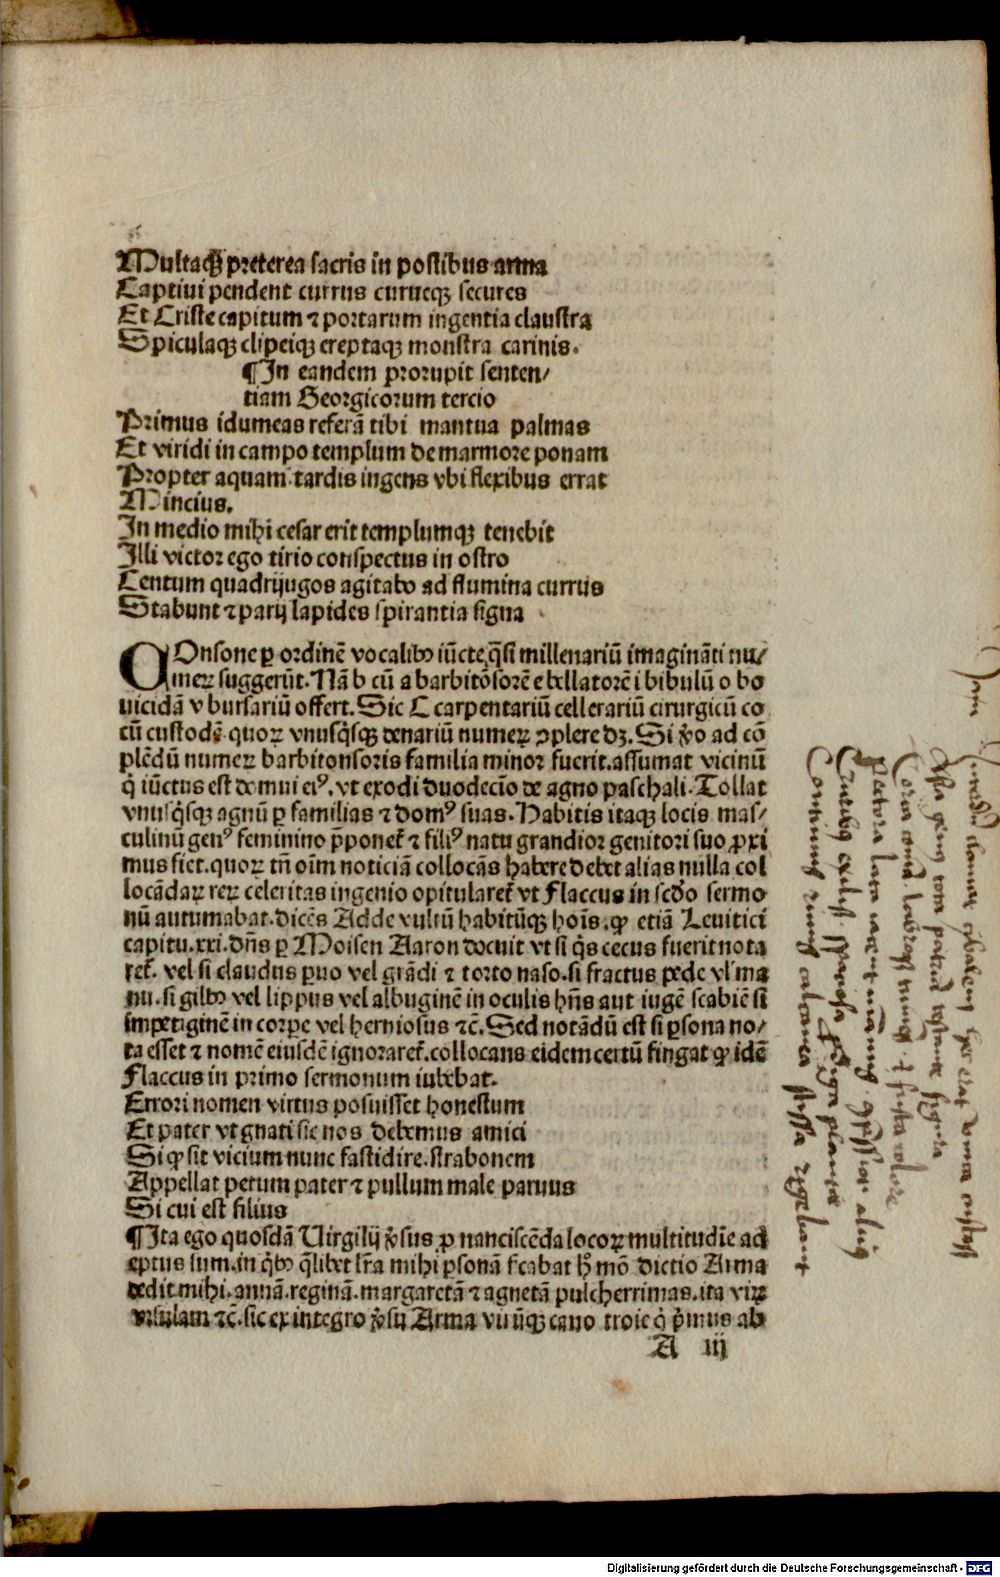 Multaqꝫ preterea sacris in postibus arma
Captiui pendent currus curueqꝫ secures
Et Criste capitum ⁊ portarum ingentia claustra
Spiculaqꝫ clipeiqꝫ ereptaqꝫ monstra carinis.
¶In eandem prorupit senten/
tiam Georgicorum tercio
Primus idumeas referā tibi mantua palmas
Et viridi in campo templum de marmore ponam
Propter aquam. tardis ingens vbi flexibus errat
Mincius.
In medio mihi cesar erit templumqꝫ tenebit
Illi victor ego tirio conspectus in ostro
Centum quadrijugos agitabo ad flumina currus
Stabunt ⁊ parij lapides spirantia signa
COnsone ꝑ ordinē vocalibꝰ iūcte q̄si millenariū imagināti nu/
meꝝ suggerūt. Nā b cū a barbitōsorē e bellatorē i bibulū o bo
uicidā v bursariū offert. Sic C carpentariū cellerariū cirurgicū co
cū custodē. quoꝝ vnusq̇sqꝫ denariū numeꝝ ꝯplere dꝫ. Si v̊o ad cō
plēdū numeꝝ barbitonsoris familia minor fuerit. assumat vicinū
q̇ iūctus est domui eiꝰ. vt exodi duodecīo de agno paschali. Tollat
vnusq̇sqꝫ agnū ꝑ familias ⁊ domꝰ suas. Habitis itaqꝫ locis mas/
culinū genꝰ feminino p̄ponet̄ ⁊ filiꝰ natu grandior genitori suo ꝓxi
mus fiet. quoꝝ tn̄ oīm noticiā collocās habere debet alias nulla col
locādaꝝ reꝝ celeritas ingenio opitularet̄ vt Flaccus in scd̄o sermo
nū autumabat. dicēs Adde vultū habitūqꝫ hoīs. ꝙ etiā Leuitici
capitu. xxi. dn̄s ꝑ Moisen Aaron docuit vt si q̇s cecus fuerit nota
ret̄. vel si claudus paruo vel grādi ⁊ torto naso. si fractus pede vl' ma
nu. si gibbꝰ vel lippus vel albuginē in oculis hn̄s aut iugē scabiē si
impetiginē in corpe vel herniosus ⁊c̄. Sed notādū est si ꝑsona no/
ta esset ⁊ nomē eiusdē ignoraret̄. collocans eidem certū fingat ꝙ idē
Flaccus in primo sermonum iubebat.
Errori nomen virtus posuisset honestum
Et pater vt gnati sic nos debemus amici
Si ꝙ sit vicium nunc fastidire. strabonem
Appellat petum pater ⁊ pullum male paruus
Si cui est filius
¶Ita ego quosdā Uirgilij v̊sus ꝓ nanciscēda locoꝝ multitudīe ad
eptus sum. in q̇bꝰ q̄libet lr̄a mihi ꝑsonā fcabat h̄ mō dictio Arma
dedit mihi. annā. reginā. margaretā ⁊ agnetā pulcherrimas. ita viꝝ
vrsulam ⁊c̄. sic ex integro v̊su Arma viūqꝫ cano troie q̇ p̄mus ab
A iij
pectora lata
calcanea
Digitalisierung gefördert durch die Deutsche Forschungsgemeinschaft - DFG